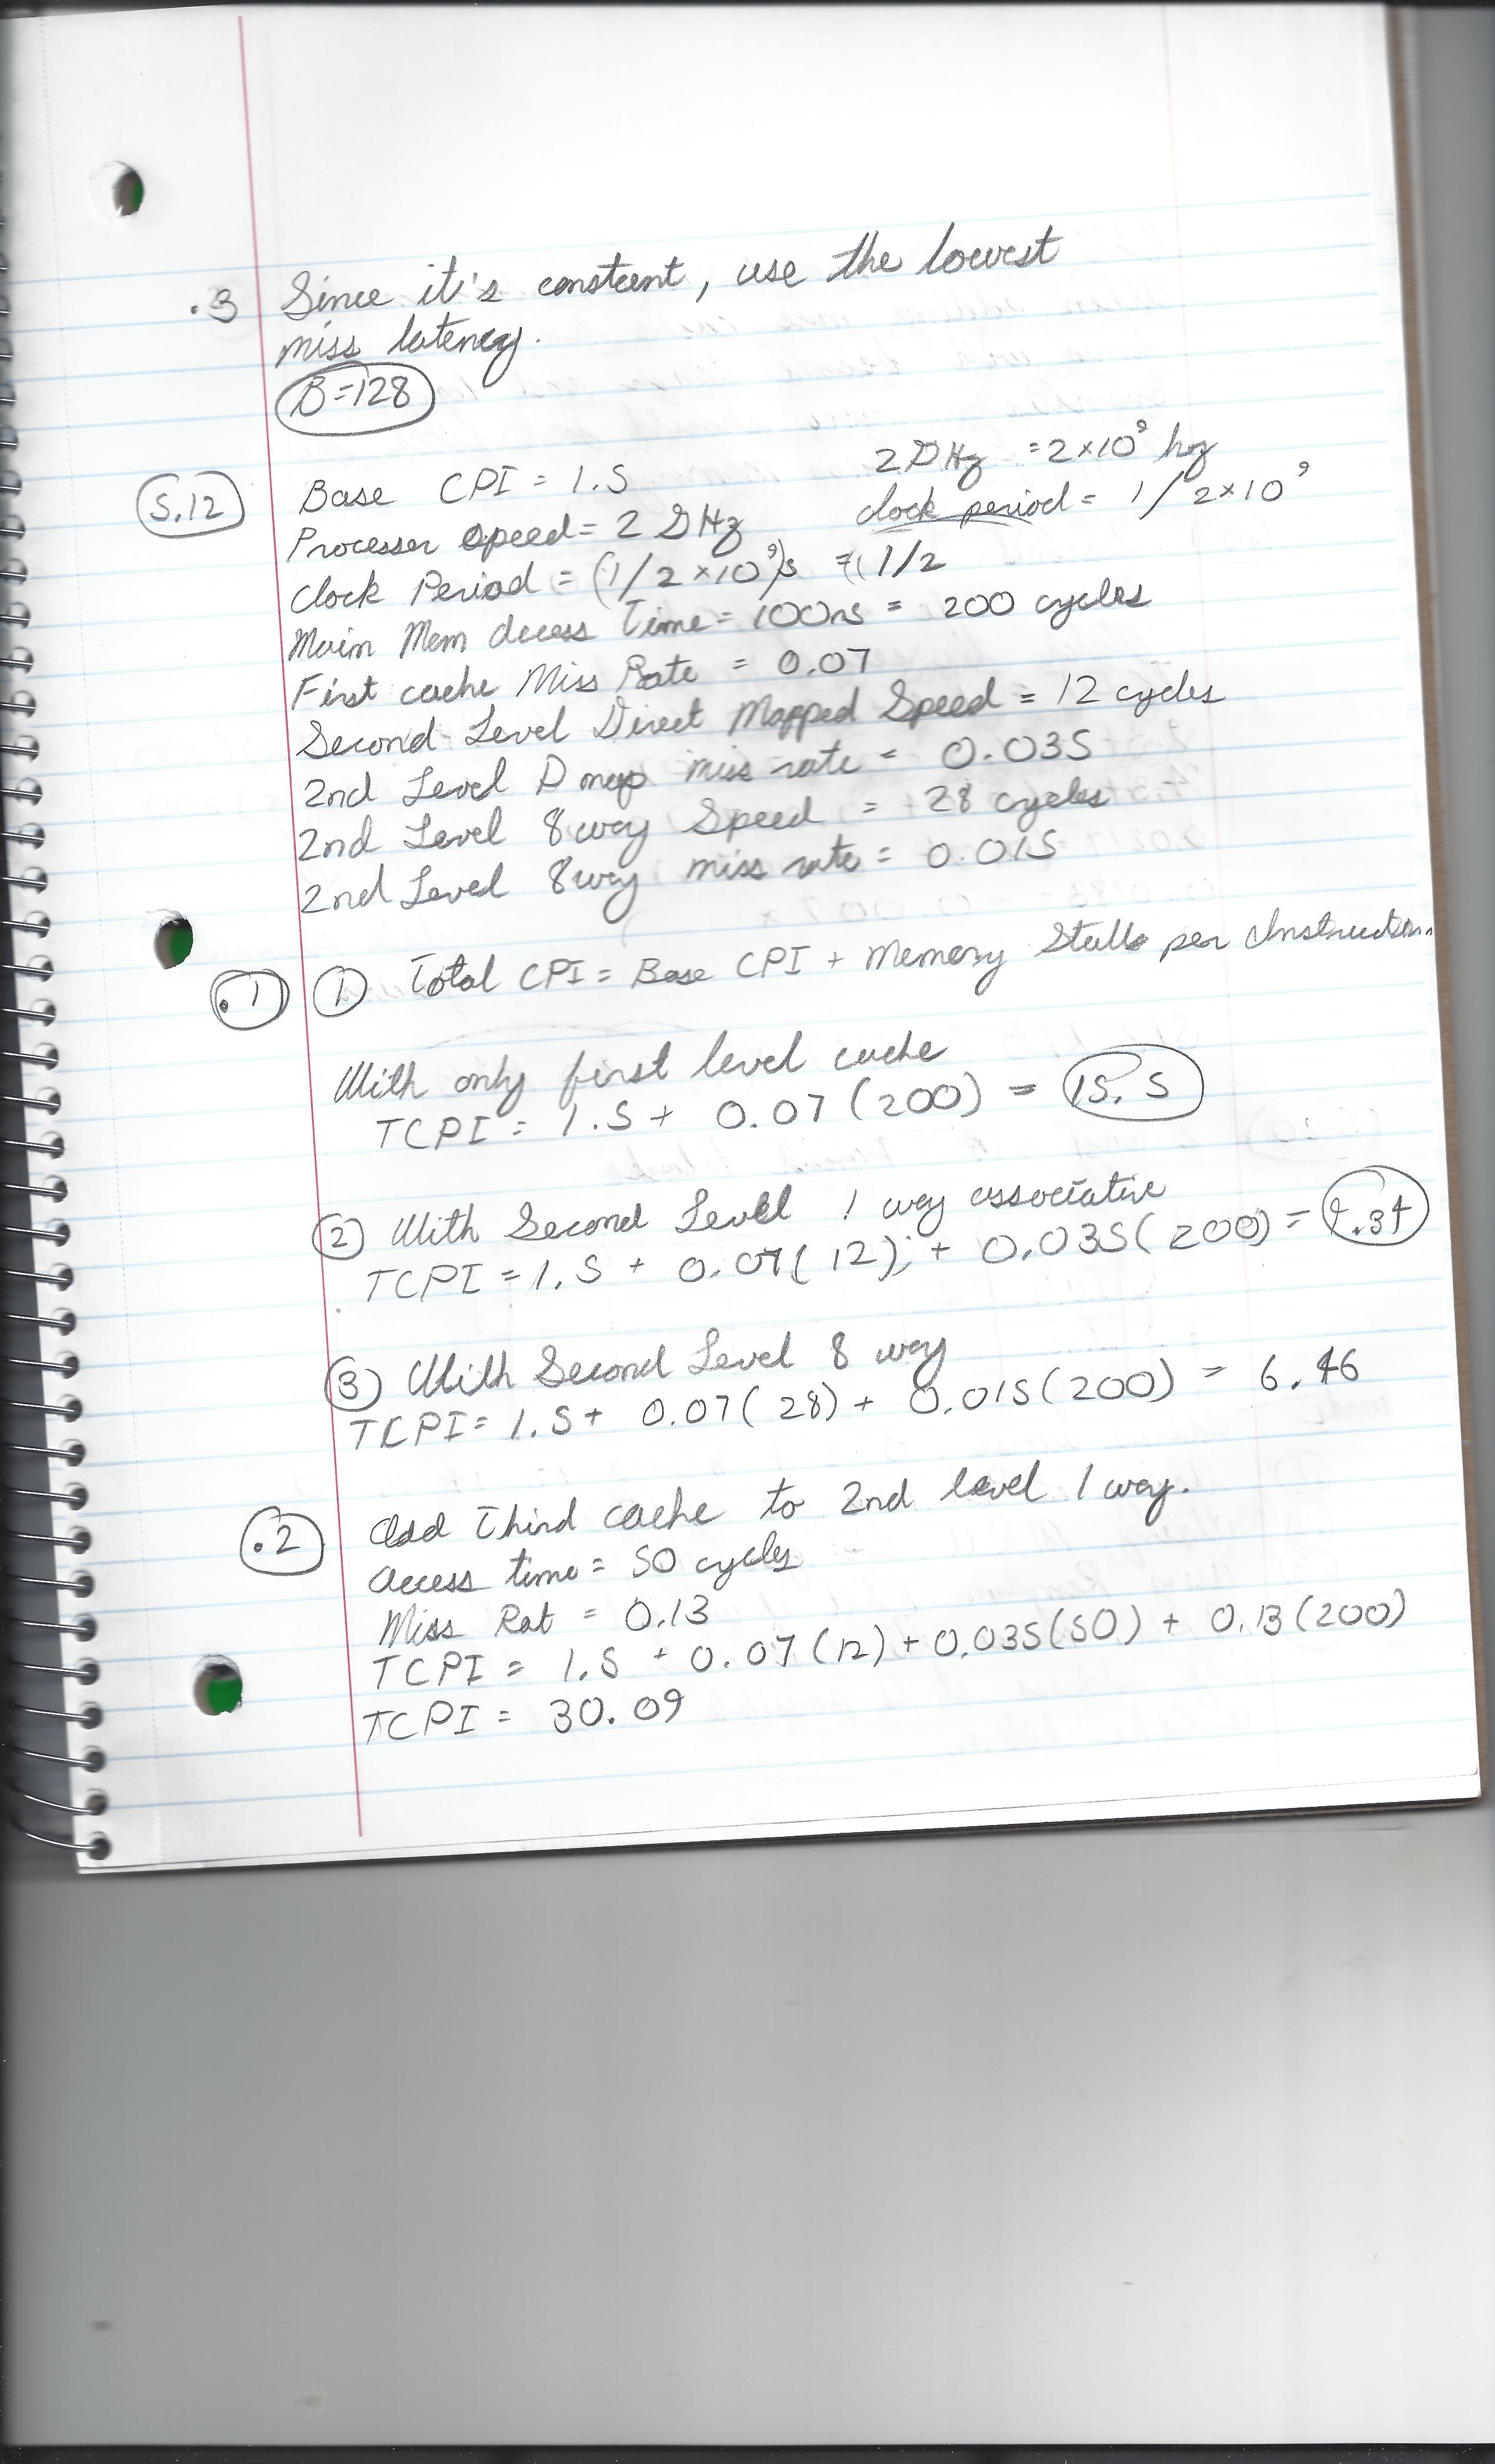 .3 Since it's constant, use the lowest
miss latency.
B=128
5.12 Base CPI = 1.5
2 GHz = 2×10⁹ hz
Processer speed = 2 GHz
clock period = 1/2×10⁹
Clock Period = (1/2×10⁹)s = 1/2
Main Mem Access Time = 100ns = 200 cycles
First cache Miss Rate = 0.07
Second Level Direct Mapped Speed = 12 cycles
2nd Level D map miss rate = 0.035
2nd Level 8 way Speed = 28 cycles
2nd Level 8 way miss rate = 0.015
.1 ① Total CPI = Base CPI + Memory Stalls per Instruction.
With only first level cache
TCPI = 1.5 + 0.07 (200) = 15.5
② With Second Level 1 way associative
TCPI = 1.5 + 0.07 (12) + 0.035 (200) = 9.34
③ With Second Level 8 way
TCPI = 1.5 + 0.07 (28) + 0.015 (200) = 6.46
.2 Add Third cache to 2nd level 1 way.
Access time = 50 cycles
Miss Rat = 0.13
TCPI = 1.5 + 0.07 (12) + 0.035 (50) + 0.13 (200)
TCPI = 30.09